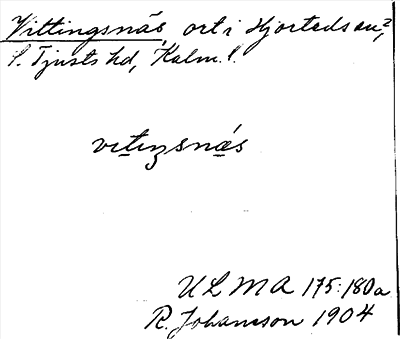 Vittingsnäs, ort i Hjorteds sn,
S. Tjusts hd, Kalm. l.
vitiŋsnäs
ULMA 175:180a
R. Johansson 1904